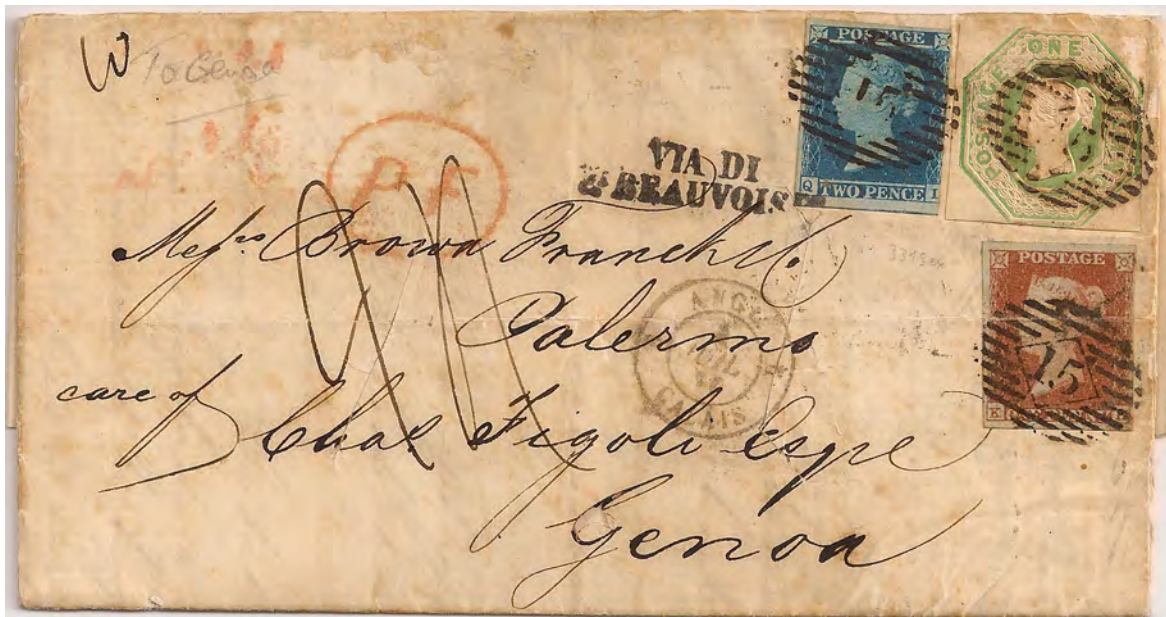 To Genoa
P.F.
VIA DI
P.BEAUVOISIN
POSTAGE
15
Q TWO PENCE I
POSTAGE ONE
POSTAGE
15
K
ANGL.
CALAIS
Messrs Brown Franck & Co.
Palermo
care of
Chas Figoli Esqre
Genoa